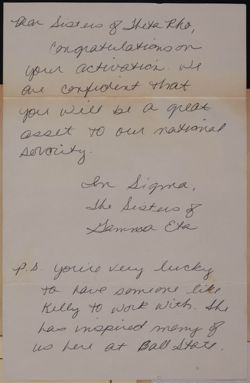 Dear Sisters of Theta Rho,
Congratulations on
your activation. We
are confident that
you will be a great
asset to our national
sorority.
In Sigma,
The Sisters of
Gamma Eta
P.S. You're very lucky
to have someone like
Kelly to work with. She
has inspired many of
us here at Ball State.